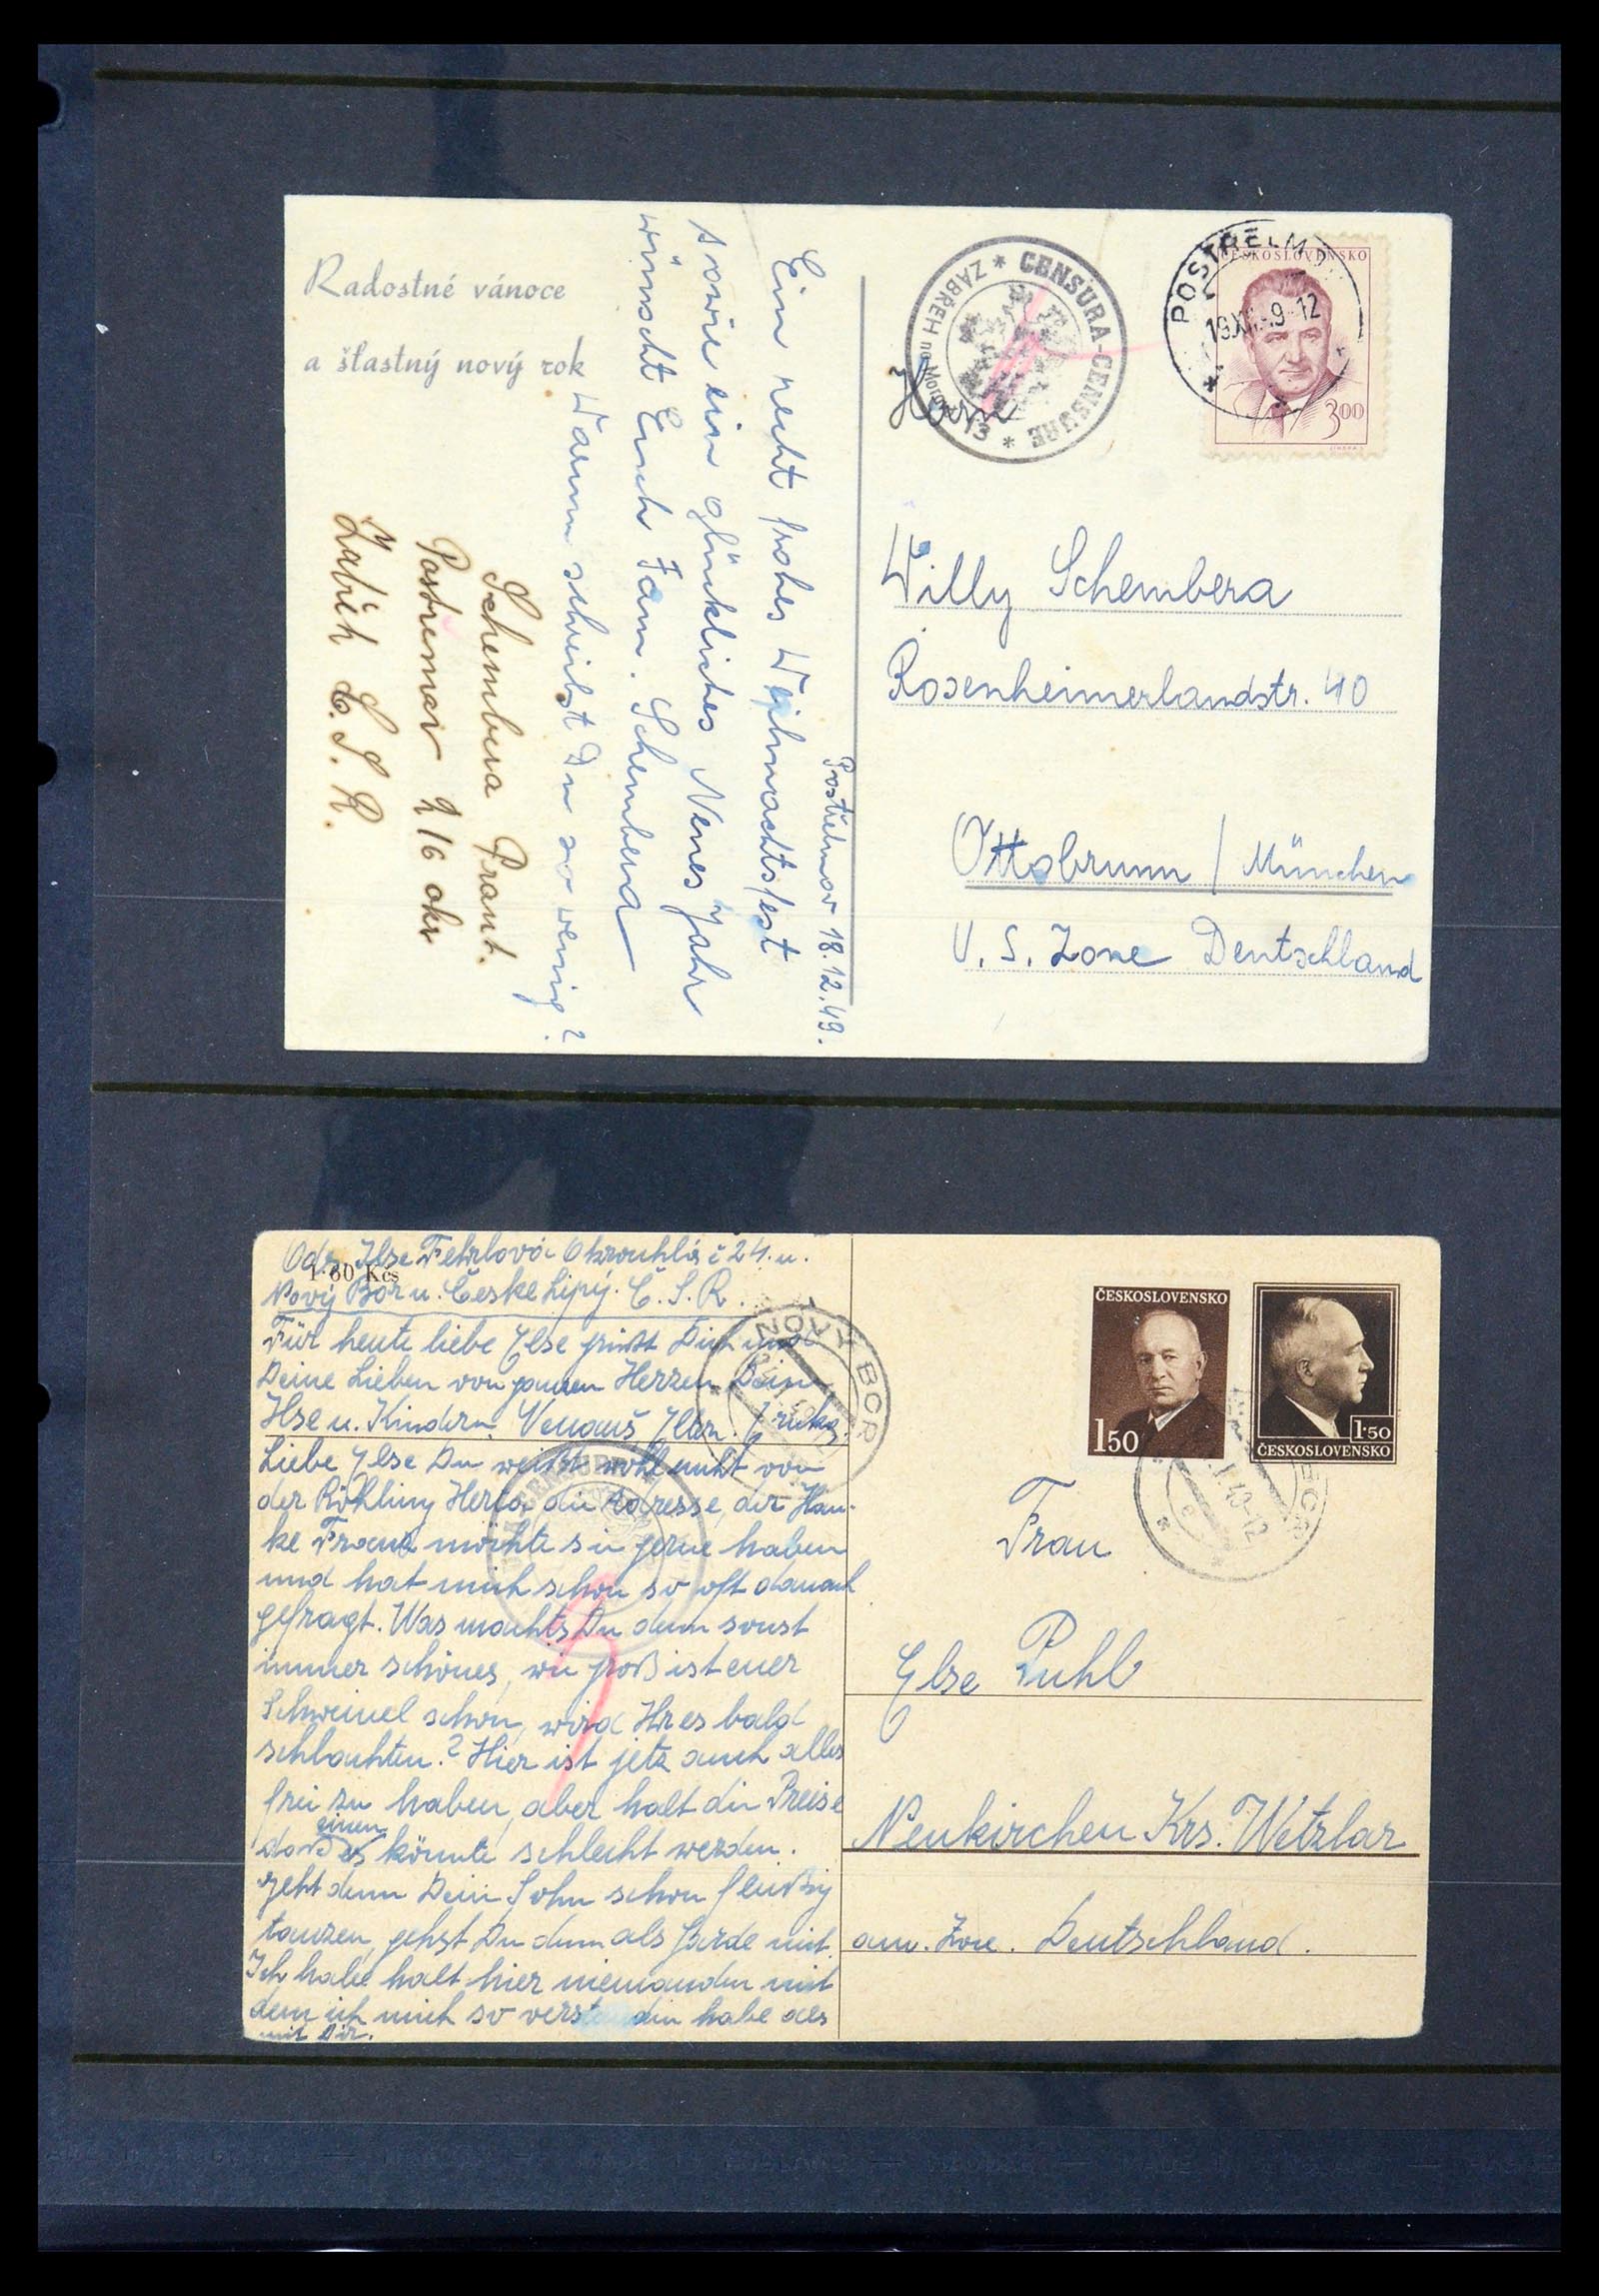 Radostné vánoce
a šťastný nový rok
Postřelmov 18.12.49.
Ein recht frohes Weihnachtsfest
sowie ein glückliches Neues Jahr
wünscht Euch Fam. Schembera
Warum schreibst Du so wenig?
Schembera Frant.
okr
Č. S. R.
CENSURA-CENSURE
ZÁBŘEH na Moravě
ČESKOSLOVENSKO
3.00
Herrn
Willy Schembera
Rosenheimerlandstr. 40
Ottobrunn / München
U. S. Zone Deutschland
Ods. Ilse Okrouhlá č 24. u.
1·80 Kčs
Nový Bor u. České Lipy. Č. S. R.
Für heute liebe Ilse grüßt Dich und
Deine Lieben von ganzen Herzen Deine
Ilse u. Kindern.
Liebe Ilse Du weißt wohl nicht von
der Herta die Adresse, der Han-
ke Franz möchte sie gerne haben
und hat mich schon so oft danach
gefragt. Was machts Du denn sonst
immer schönes, wie groß ist euer
Schweinel schon, wird Ihr es bald
schlachten.? Hier ist jetz auch alles
frei zu haben, aber halt die Preise
einen
daß es könnte schlecht werden.
geht denn Dein Sohn schon fleißig
tanzen, gehst Du denn als Garde mit.
Ich habe halt hier niemanden mit
dem ich mich so verstanden habe als
mit Dir.
NOVÝ BOR
ČESKOSLOVENSKO
1.50
1·50
ČESKOSLOVENSKO
Frau
Ilse Puhl
Neukirchen Krs. Wetzlar
am. Zone. Deutschland.